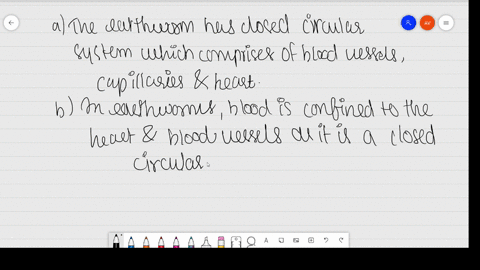 a) The earthworm has closed circular
system which comprises of blood vessels,
capillaries & heart.
b) In earthworms, blood is confined to the
heart & blood vessels as it is a closed
circular